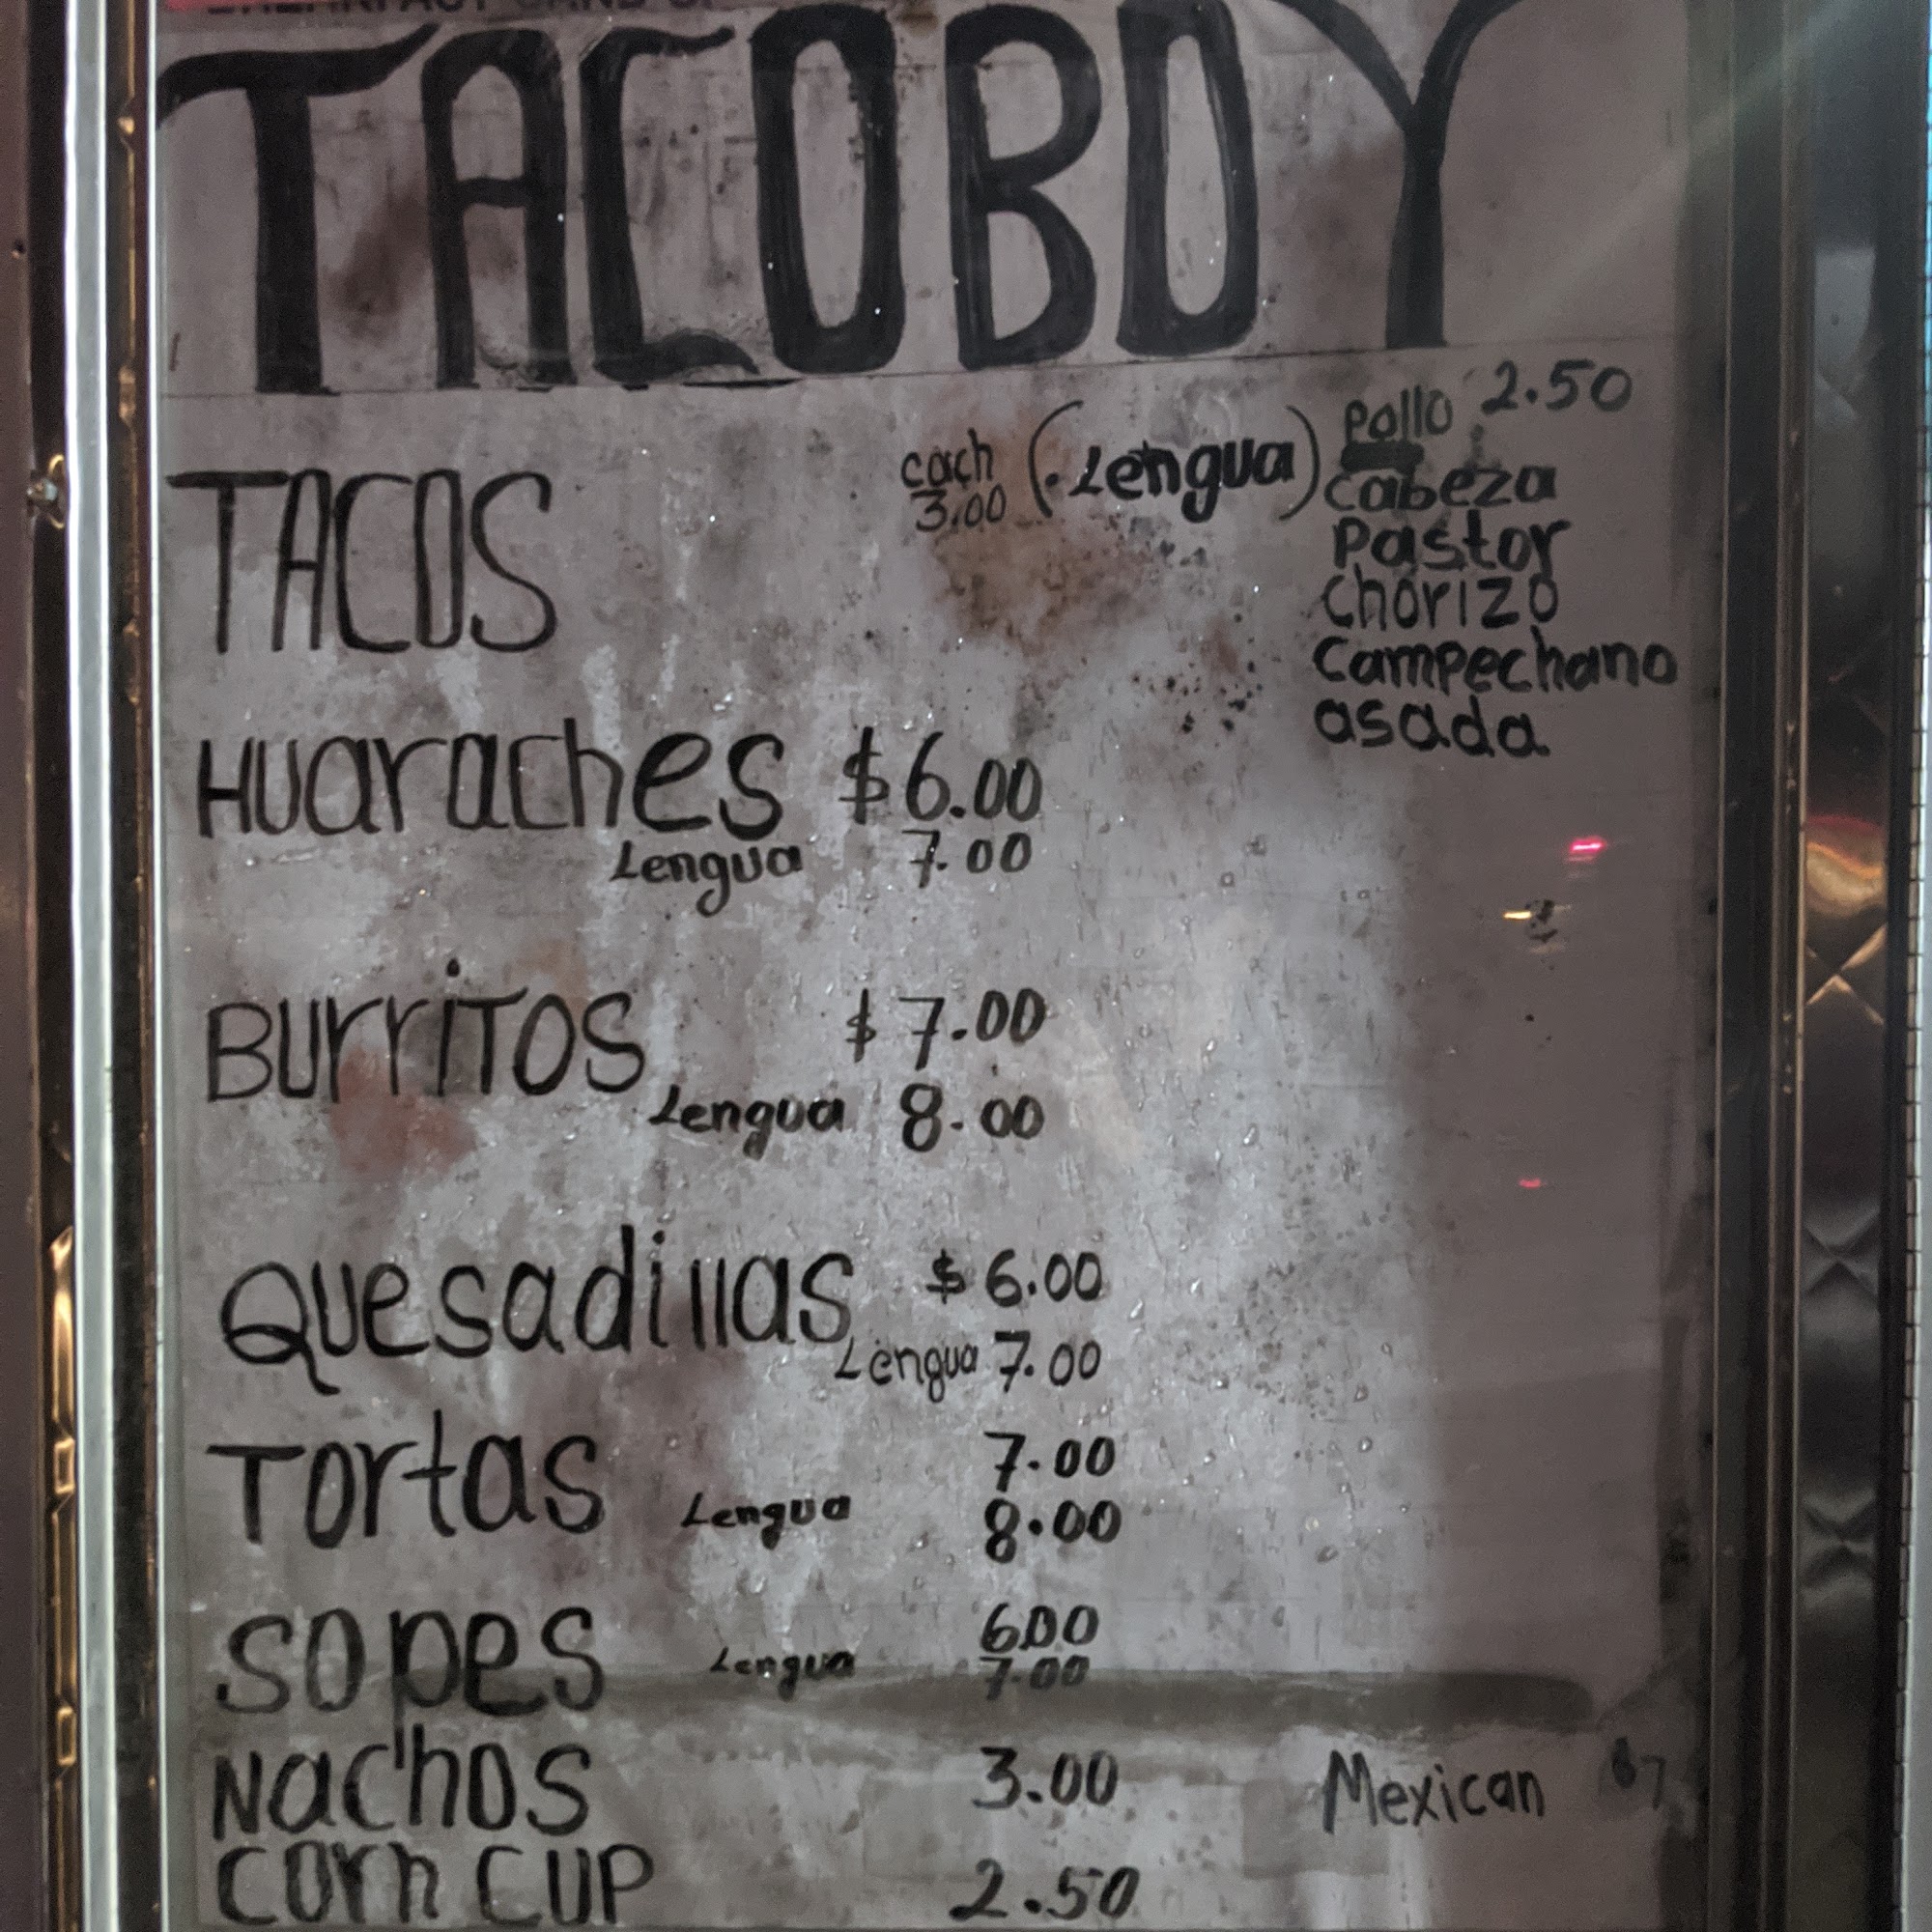 TACOBOY
TACOS
each
3.00
(.Lengua)
Pollo 2.50
Cabeza
Pastor
Chorizo
Campechano
asada
Huaraches $6.00
Lengua 7.00
BurriTOS $7.00
Lengua 8.00
Quesadillas $6.00
Lengua 7.00
Tortas 7.00
Lengua 8.00
Sopes 6.00
Lengua 7.00
Nachos 3.00 Mexican
Corn CUP 2.50